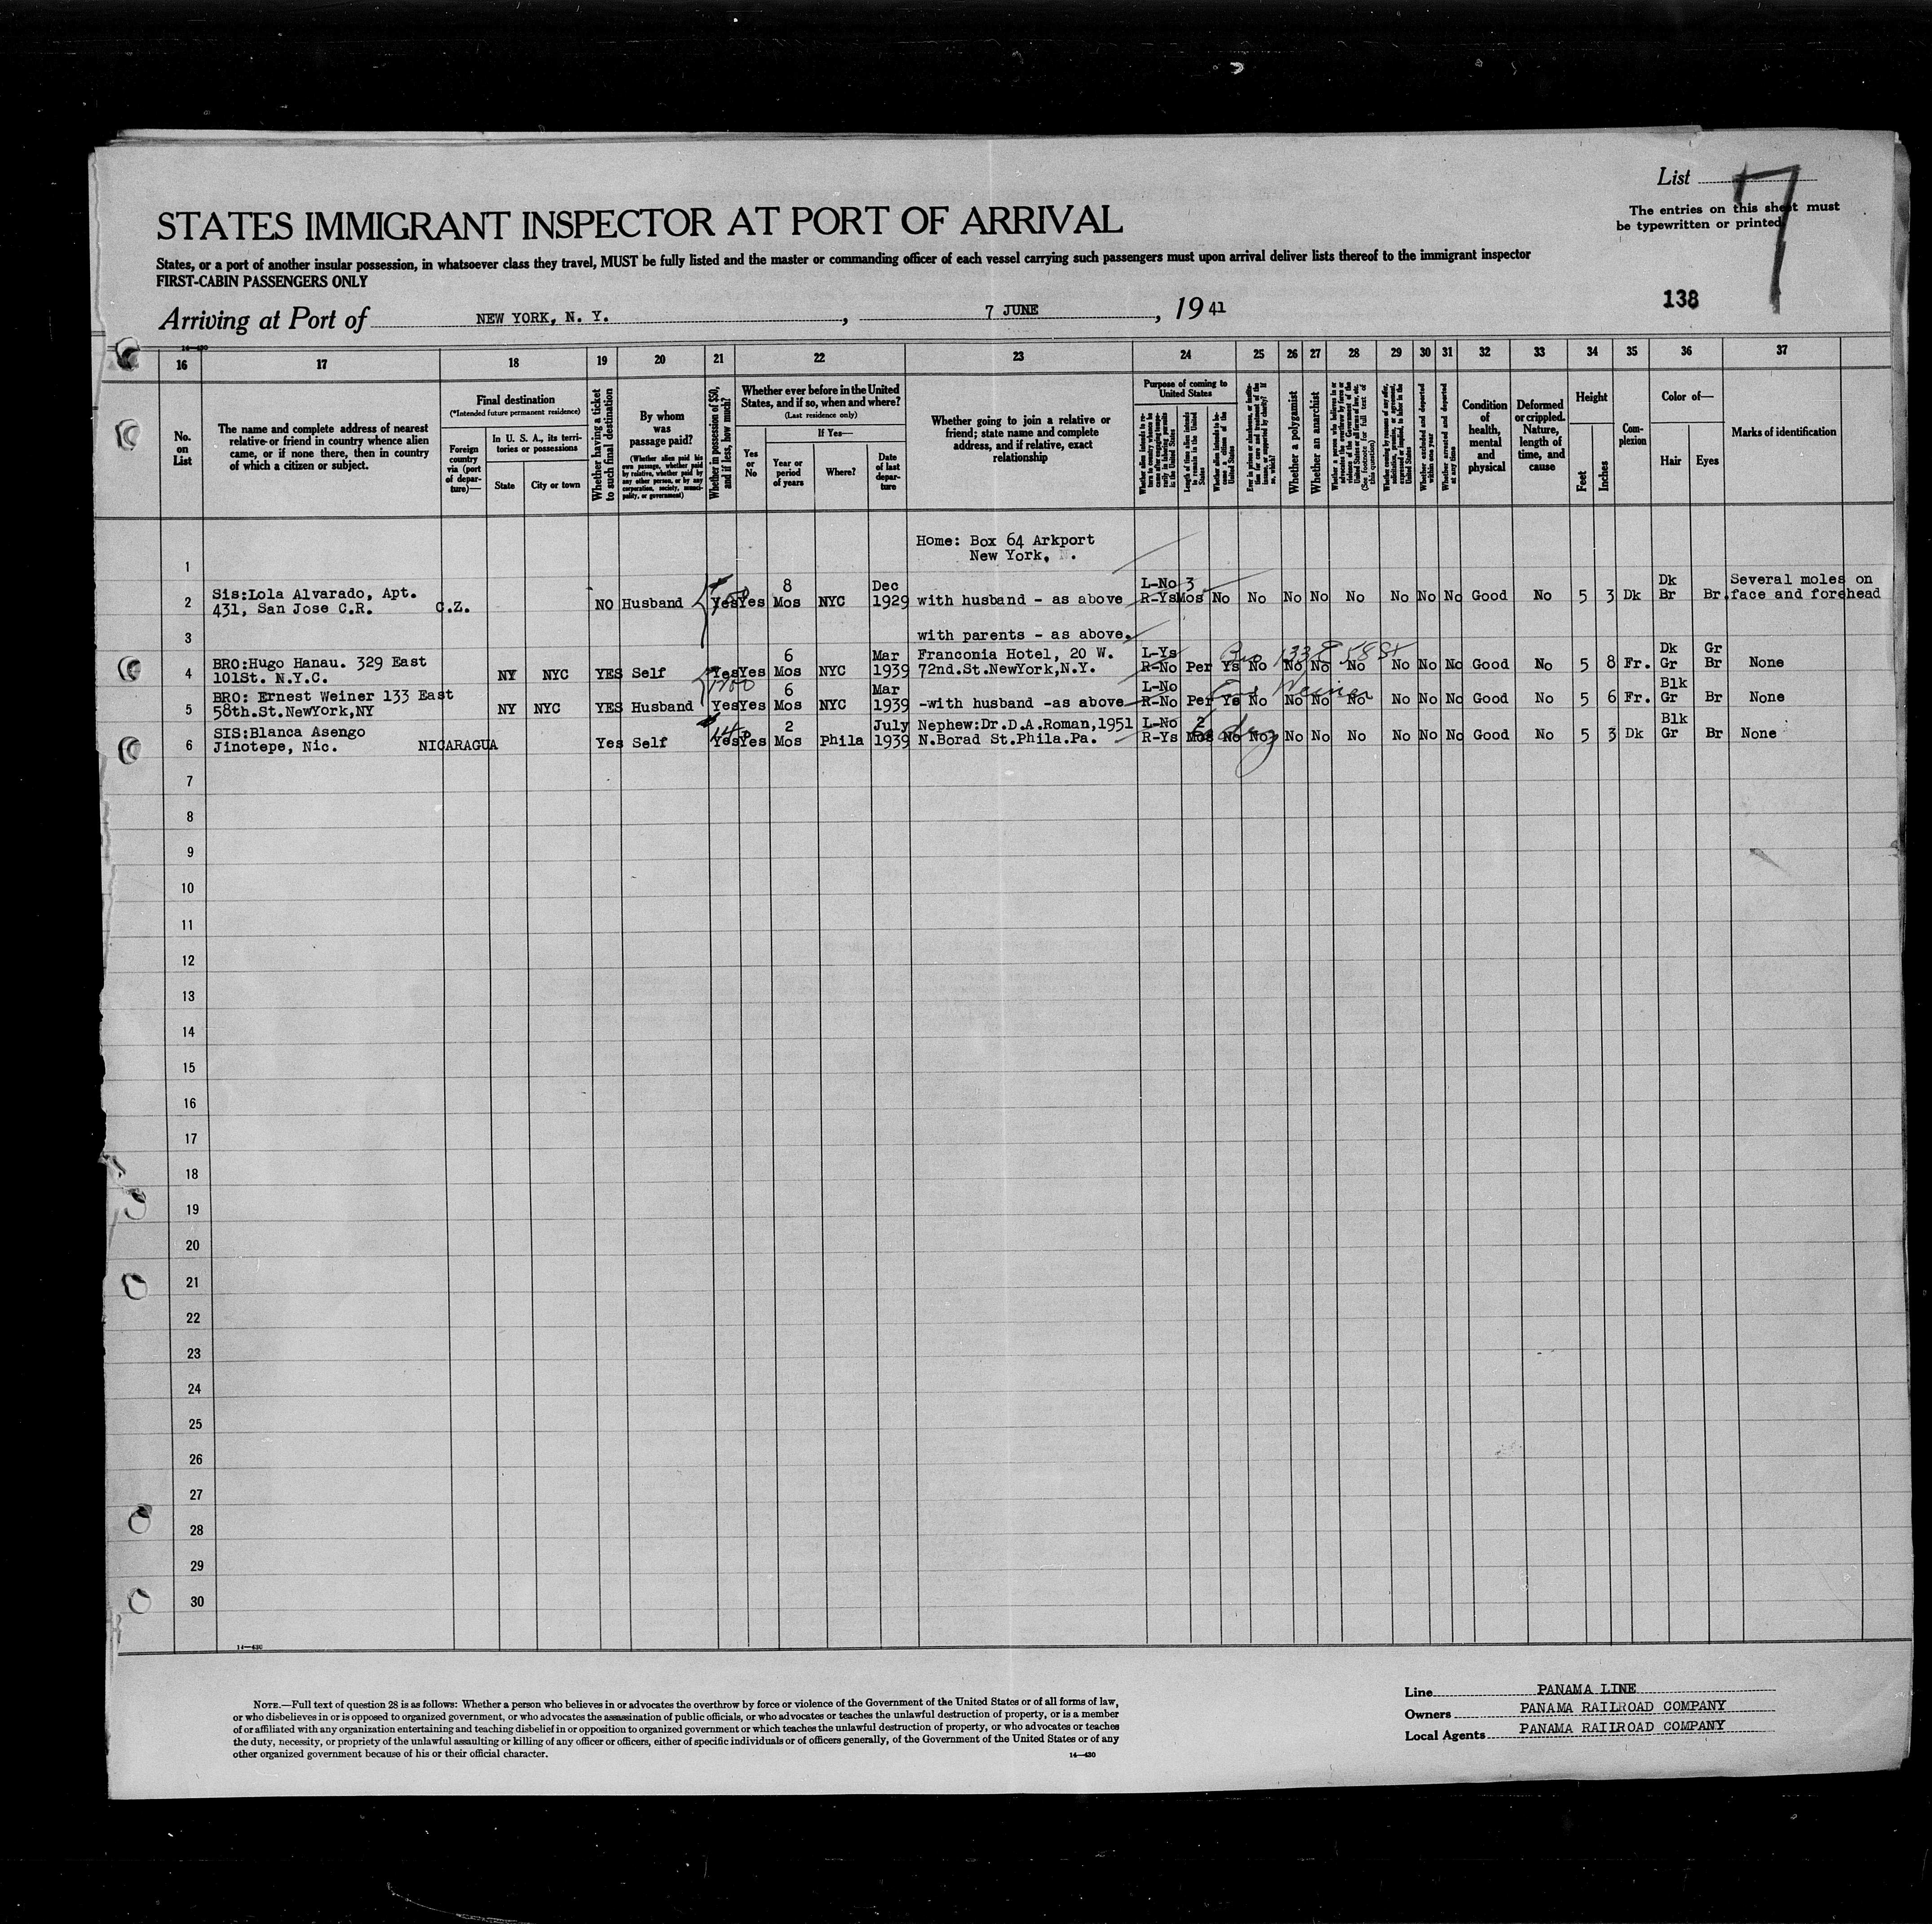 List 7
The entries on this sheet must
be typewritten or printed
STATES IMMIGRANT INSPECTOR AT PORT OF ARRIVAL
States, or a port of another insular possession, in whatsoever class they travel, MUST be fully listed and the master or commanding officer of each vessel carrying such passengers must upon arrival deliver lists thereof to the immigrant inspector
FIRST-CABIN PASSENGERS ONLY
138
Arriving at Port of NEW YORK, N. Y., 7 JUNE, 19 41
14—430
16 17 18 19 20 21 22 23 24 25 26 27 28 29 30 31 32 33 34 35 36 37
No. on List
The name and complete address of nearest relative or friend in country whence alien came, or if none there, then in country of which a citizen or subject.
Final destination
(*Intended future permanent residence)
Foreign country via (port of departure)—
In U. S. A., its territories or possessions
State
City or town
Whether having a ticket to such final destination
By whom was passage paid?
(Whether alien paid his own passage, whether paid by relative, whether paid by any other person, or by any corporation, society, municipality, or government)
Whether in possession of $50, and if less, how much?
Whether ever before in the United States, and if so, when and where?
(Last residence only)
Yes or No
If Yes—
Year or period of years
Where?
Date of last departure
Whether going to join a relative or friend; state name and complete address, and if relative, exact relationship
Purpose of coming to United States
Length of time alien intends to remain in the United States
Whether alien intends to become a citizen of the United States
Whether a polygamist
Whether an anarchist
(See footnote for full text of this question)
Whether excluded and deported within one year
Whether arrested and deported at any time
Condition of health, mental and physical
Deformed or crippled. Nature, length of time, and cause
Height
Feet
Inches
Complexion
Color of—
Hair
Eyes
Marks of identification
Home: Box 64 Arkport
1 New York, N.
Sis:Lola Alvarado, Apt. 8 Dec L-No 3 Dk Several moles on
2 431, San Jose C.R. C.Z. NO Husband Yes Yes Mos NYC 1929 with husband - as above R-Ys Mos No No No No No No No No Good No 5 3 Dk Br Br. face and forehead
3 with parents - as above.
BRO:Hugo Hanau. 329 East 6 Mar Franconia Hotel, 20 W. L-Ys Bro 133 E 58 St Dk Gr
4 101St. N.Y.C. NY NYC YES Self Yes Yes Mos NYC 1939 72nd.St.NewYork,N.Y. R-No Per Ys No No No No No No No Good No 5 8 Fr. Gr Br None
BRO: Ernest Weiner 133 East 1700 6 Mar L-No Weiner Blk
5 58th.St.NewYork,NY NY NYC YES Husband Yes Yes Mos NYC 1939 -with husband -as above R-No Per Ys No No No No No No No Good No 5 6 Fr. Gr Br None
SIS:Blanca Asengo 2 July Nephew:Dr.D.A.Roman,1951 L-No 2 Blk
6 Jinotepe, Nic. NICARAGUA Yes Self Yes Yes Mos Phila 1939 N.Borad St.Phila.Pa. R-Ys Mos No No No No No No No No Good No 5 3 Dk Gr Br None
7
8
9
10
11
12
13
14
15
16
17
18
19
20
21
22
23
24
25
26
27
28
29
30
14—430
NOTE.—Full text of question 28 is as follows: Whether a person who believes in or advocates the overthrow by force or violence of the Government of the United States or of all forms of law,
or who disbelieves in or is opposed to organized government, or who advocates the assassination of public officials, or who advocates or teaches the unlawful destruction of property, or is a member
of or affiliated with any organization entertaining and teaching disbelief in or opposition to organized government or which teaches the unlawful destruction of property, or who advocates or teaches
the duty, necessity, or propriety of the unlawful assaulting or killing of any officer or officers, either of specific individuals or of officers generally, of the Government of the United States or of any
other organized government because of his or their official character.
14—430
Line PANAMA LINE
Owners PANAMA RAILROAD COMPANY
Local Agents PANAMA RAILROAD COMPANY